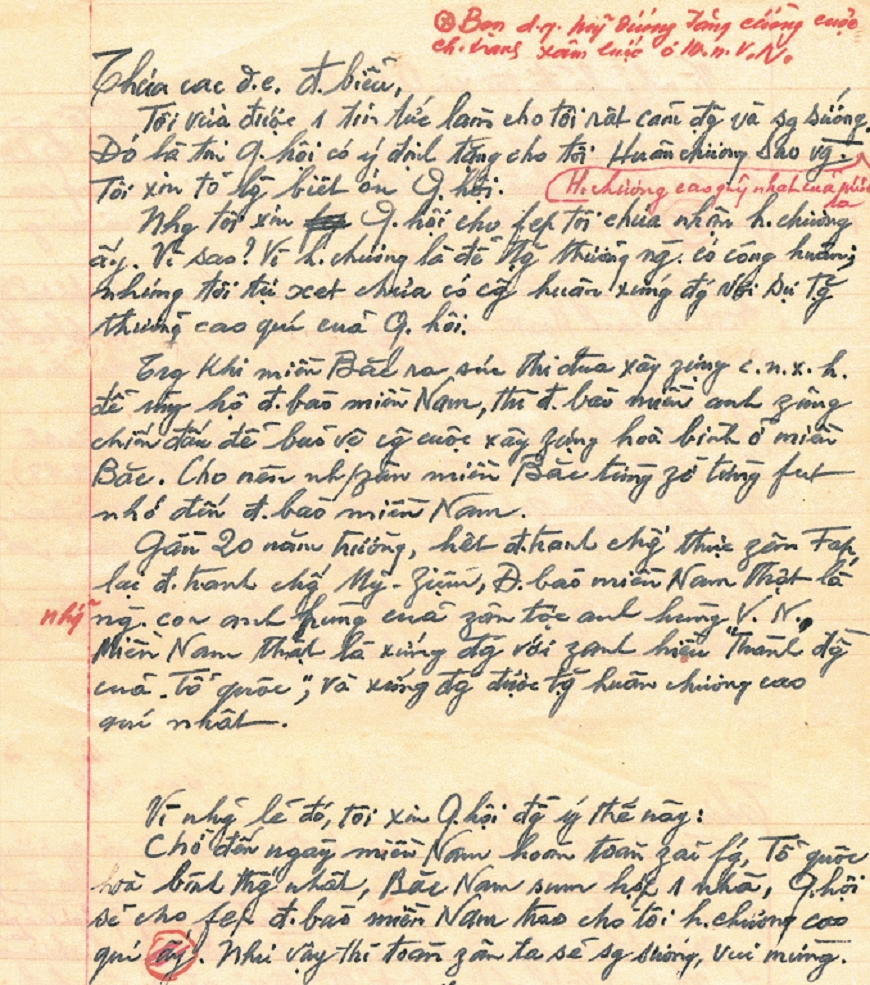 ⊛ Bọn đ.q. Mỹ đương tăng cường cuộc
ch.tranh xâm lược ở M.n.V.N.
Thưa các đ.c. đ. biểu,
Tôi vừa được 1 tin tức làm cho tôi rất cảm đg và sg sướng.
Đó là tin Q.hội có ý định tặng cho tôi Huân chương Sao vg.
Tôi xin tỏ lg biết ơn Q.hội.
H.chương cao quý nhất của nước
ta
Nhg tôi xin Q.hội cho fep tôi chưa nhận h.chương
ấy. Vì sao? Vì h.chương là để tặg thưởng ng. có công huân;
nhưng tôi tự xét chưa có cg huân xứng đg với sự tặg
thưởng cao quí của Q.hội.
Trg khi miền Bắc ra sức thi đua xây zựng c.n.x.h.
để ủng hộ đ.bào miền Nam, thì đ.bào miền anh zũng
chiến đấu để bảo vệ cg cuộc xây zựng hoà bình ở miền
Bắc. Cho nên nh/zân miền Bắc từng zờ từng fút
nhớ đến đ.bào miền Nam.
Gần 20 năm trường, hết đ.tranh chốg thực zân Fap,
lại đ.tranh chốg Mỹ-Ziệm, Đ.bào miền Nam thật là
nhữg
ng. con anh hùng của zân tộc anh hùng V.N.
Miền Nam thật là xứng đg với zanh hiệu "Thành đồg
của Tổ quốc", và xứng đg được tặg huân chương cao
quí nhất.
Vì nhữg lẽ đó, tôi xin Q.hội đồg ý thế này:
Chờ đến ngày miền Nam hoàn toàn zải fg, Tổ quốc
hoà bình thốg nhất, Bắc Nam sum họp 1 nhà, Q.hội
sẽ cho fep đ.bào miền Nam trao cho tôi h.chương cao
quí ấy. Như vậy thì toàn zân ta sẽ sg sướng, vui mừng.